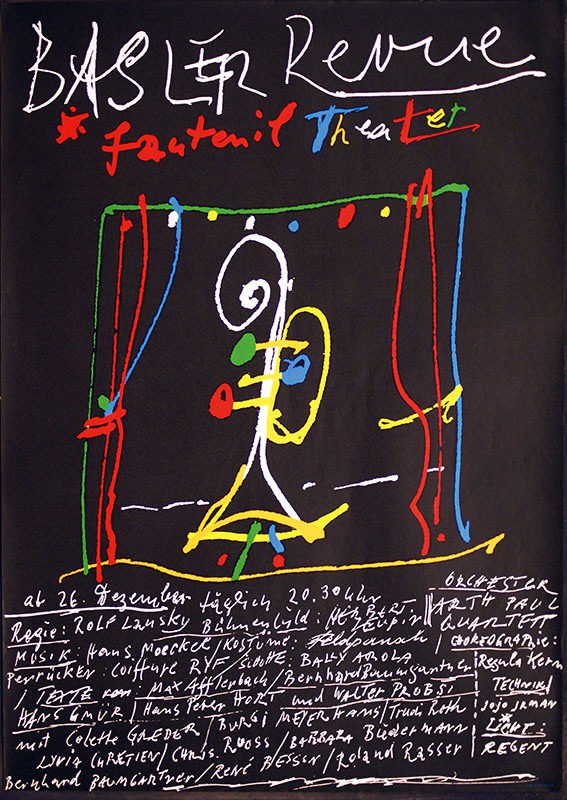 BASLER Revue
* Fauteuil Theater
ab 26. Dezember täglich 20.30 Uhr
Regie: Rolf Lansky Bühnenbild: HERBERT LEUPIN
MUSIK: Hans Moeckel / KOSTÜME: Feldpausch
Perrücken: COIFFURE RYF / SCHUHE: BALLY AROLA
/ TEXTE von: MAX Afflerbach / Bernhard Baumgartner
HANS GMÜR / Hans Peter HORT und Walter PROBST
mit Colette GREDER / BURGI MEYERHANS / Trudi Roth
LYVIA CHRETIEN / CHRIS. RUOSS / BARBARA Biedermann
Bernhard BAUMGARTNER / RENÉ BESSON / Roland Rasser
ORCHESTER
ARTH PAUL
QUARTETT
CHOREOGRAPHIE:
Regula Kern
TECHNIK
JoJo JRMAN
LICHT:
REGENT